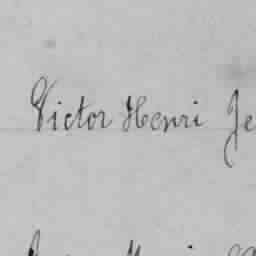 Victor Henri Je